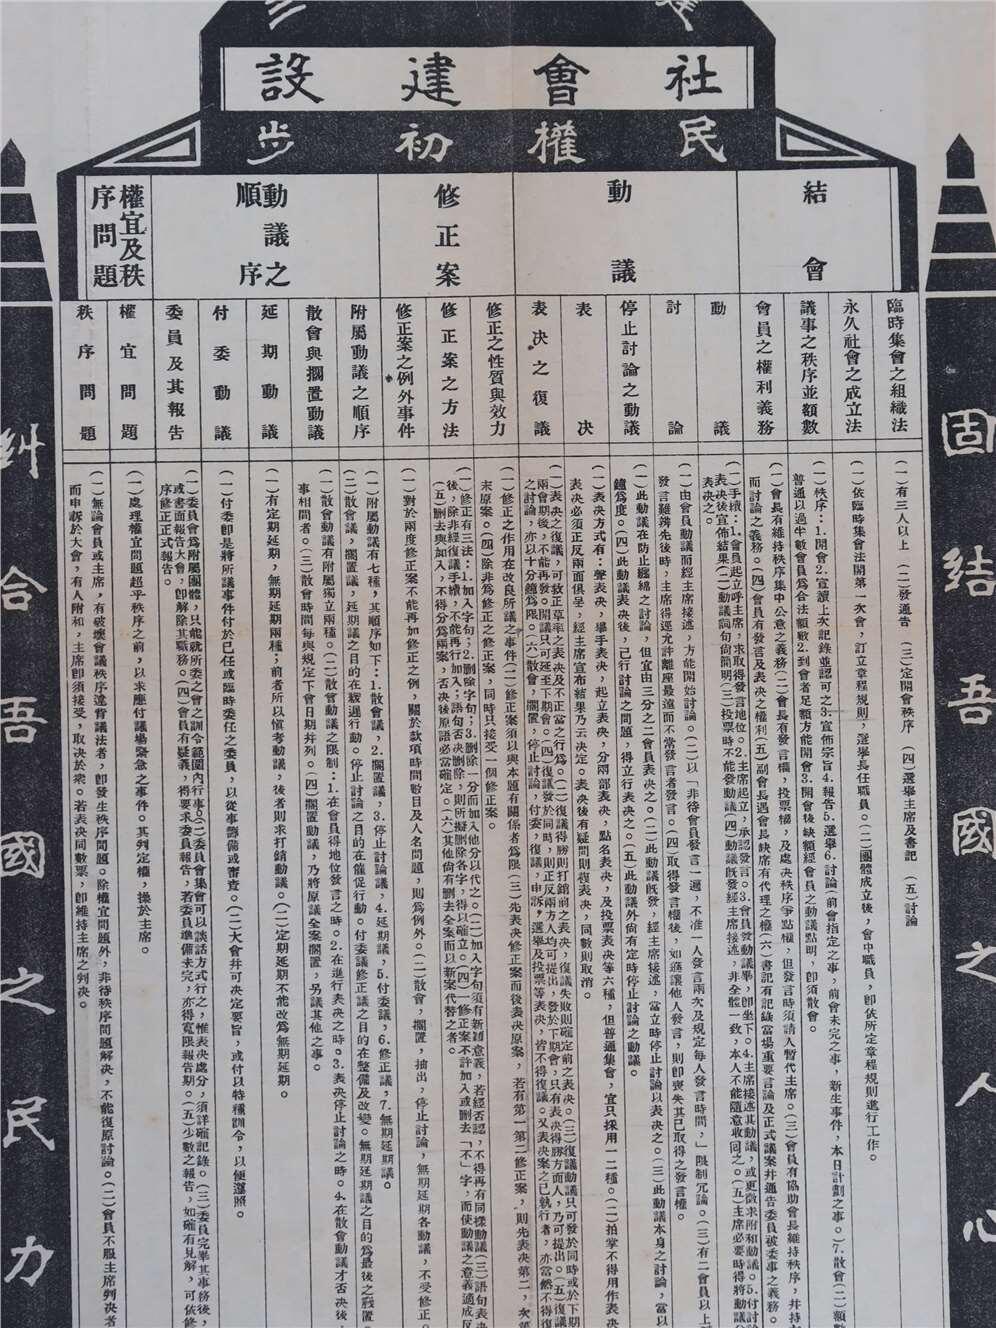 社會建設
民權初步
結會
動議
修正案
動議之順序
權宜及秩序問題
臨時集會之組織法
永久社會之成立法
議事之秩序並額數
會員之權利義務
動議
討論
停止討論之動議
表決
表決之復議
修正之性質與效力
修正案之方法
修正案之例外事件
附屬動議之順序
散會與擱置動議
延期動議
付委動議
委員及其報告
權宜問題
秩序問題
(一)有三人以上 (二)發通告 (三)定開會秩序 (四)選舉主席及書記 (五)討論
(一)依臨時集會法開第一次會，訂立章程規則，選舉長任職員。(二)團體成立後，會中職員，卽依所定章程規則進行工作。
(一)秩序：1.開會2.宣讀上次記錄並認可之3.宣佈宗旨4.報告5.選舉6.討論(前會指定之事，前會未完之事，新生事件，本日計劃之事。)7.散會(二)額數
普通以過半數會員爲合法額數2.到會者足額方能開會3.開會後缺額經會員之動議點明，卽須散會。
(一)會長有維持秩序集中公意之義務(二)會長有發言權，投票權，及處決秩序爭點權，但發言時須請人暫代主席。(三)會員有協助會長維持秩序，并持
而討論之義務。(四)會員有發言及表決之權利(五)副會長遇會長缺席有代理之權(六)書記有記錄當場重要言論及正式議案并通告委員被委事之義務。
(一)手續：1.會員起立呼主席，求取得發言地位。2.主席起立，承認發言。3.會員發動議畢，卽坐下。4.主席接述其動議，或更徵求附和動議。5.付討論
表決後宣佈結果(二)動議詞句尙簡明(三)投票時不能發動議(四)動議旣發經主席接述，非全體一致，本人不能隨意收回之。(五)主席必要時得將動議
表決之。
(一)由會員動議而經主席接述，方能開始討論。(二)以「非待會員發言一遍，不准一人發言兩次及規定每人發言時間，」限制冗論。(三)有二會員以上
發言難辨先後時，主席得逕允許離座最遠而不常發言者發言。(四)取得發言權後，如遜讓他人發言，則卽喪失其已取得之發言權。
(一)此動議在防止纏綿之討論，但宜由三分之二會員表決之。(二)此動議旣發，經主席接述，當立時停止討論以表決之。(三)此動議本身之討論，當以
鐘爲度。(四)此動議表決後，已行討論之問題，得立行表決之。(五)此動議外尙有定時停止討論之動議。
(一)表決方式有：聲表決，舉手表決，起立表決，分兩部表決，點名表決，及投票表決等六種，但普通集會，宜只採用一二種。(二)拍掌不得用作表決
表決必須正反兩面俱呈，經主席宣布結果乃云決定。表決後有疑問則復表決，同數則取消。
(一)表決之復議，可救正草率之表決及不正當之行爲。(二)復議得勝則打銷前之表決，復議失敗則確定前之表決。(三)復議動議只可發於同時或於下期
兩會期後，不能再發。開議只可延至下期會。(四)復議發於同時，則正反兩方人均可提出，發於下期會，只有表決得勝方面人，乃可提出。(五)復議
之討論，亦以十分鐘爲限。(六)散會，擱置，停止討論，付委，復議，申訴，選舉及投票等表決，皆不得復議。又表決案之已執行者，亦當然不得復
(一)修正之作用在改良所議之事件(二)修正案須以與本題有關係者爲限(三)先表決修正案而後表決原案，若有第一第二修正案，則先表決第二，次
末原案。(四)除非爲修正之修正案，同時只接受一個修正案。
(一)修正有三法：1.加入字句；2.刪除字句；3.刪除一分而加入他分以代之。(二)加入字句須有新穎意義，若經否認，不得再有同樣動議(三)語句表決
後，除非經復議手續，不能再行加入；語句否決刪除，則所擬刪除各字，得以確立。(四)一修正案不許加入或刪去「不」字，而使動議之意義適成反
(五)刪去與加入，不得分爲兩案，否決後原語必當確定。(六)其他尙有刪去全案而以新案代替之者。
(一)對於兩度修正案不能再加修正之例，關於款項時間數目及人名問題，則爲例外。(二)散會，擱置，抽出，停止討論，無期延期各動議，不受修正。
(一)附屬動議有七種，其順序如下：1.散會議，2.擱置議，3.停止討論議，4.延期議，5.付委議，6.修正議，7.無期延期議。
(二)散會議，擱置議，延期議之目的在緩進行動。停止討論之目的在催促行動。付委議修正議之目的在整備及改變。無期延期議之目的爲最後之戲置
(一)散會動議有附屬與獨立兩種。(二)散會動議之限制：1.在會員得地位發言之時。2.在進行表決之時。3.表決停止討論之時。4.在散會動議才否決後
事相間者。(三)散會時間每與規定下會日期并列。(四)擱置動議，乃將原議全案擱置，另議其他之事。
(一)有定期延期，無期延期兩種；前者所以愼考動議，後者則求打銷動議。(二)定期延期不能改爲無期延期。
(一)付委卽是將所議事件付於已任或臨時委任之委員，以從事籌備或審查。(二)大會幷可決定要旨，或付以特種訓令，以便遵照。
(一)委員會爲附屬團體，只能就所委之會之訓令範圍內行事。(二)委員會集會可以談話方式行之，惟表決處分，須詳確記錄。(三)委員完畢其事務後，
或書面報告大會，卽解除其職務。(四)會員有疑義，得要求委員報告，若委員準備未完，亦得寬限報告期。(五)少數之報告，如確有見解，可依修
序修正正式報告。
(一)處理權宜問題超乎秩序之前，以求應付議場緊急之事件。其判定權，操於主席。
(一)無論會員或主席，有破壞會議秩序違背議法者，卽發生秩序問題。除權宜問題外，非待秩序問題解決，不能復原討論。(二)會員不服主席判決者
而申訴於大會，有人附和，主席卽須接受，取決於衆。若表決同數票，卽維持主席之判決。
固結吾國之人心
糾合吾國之民力